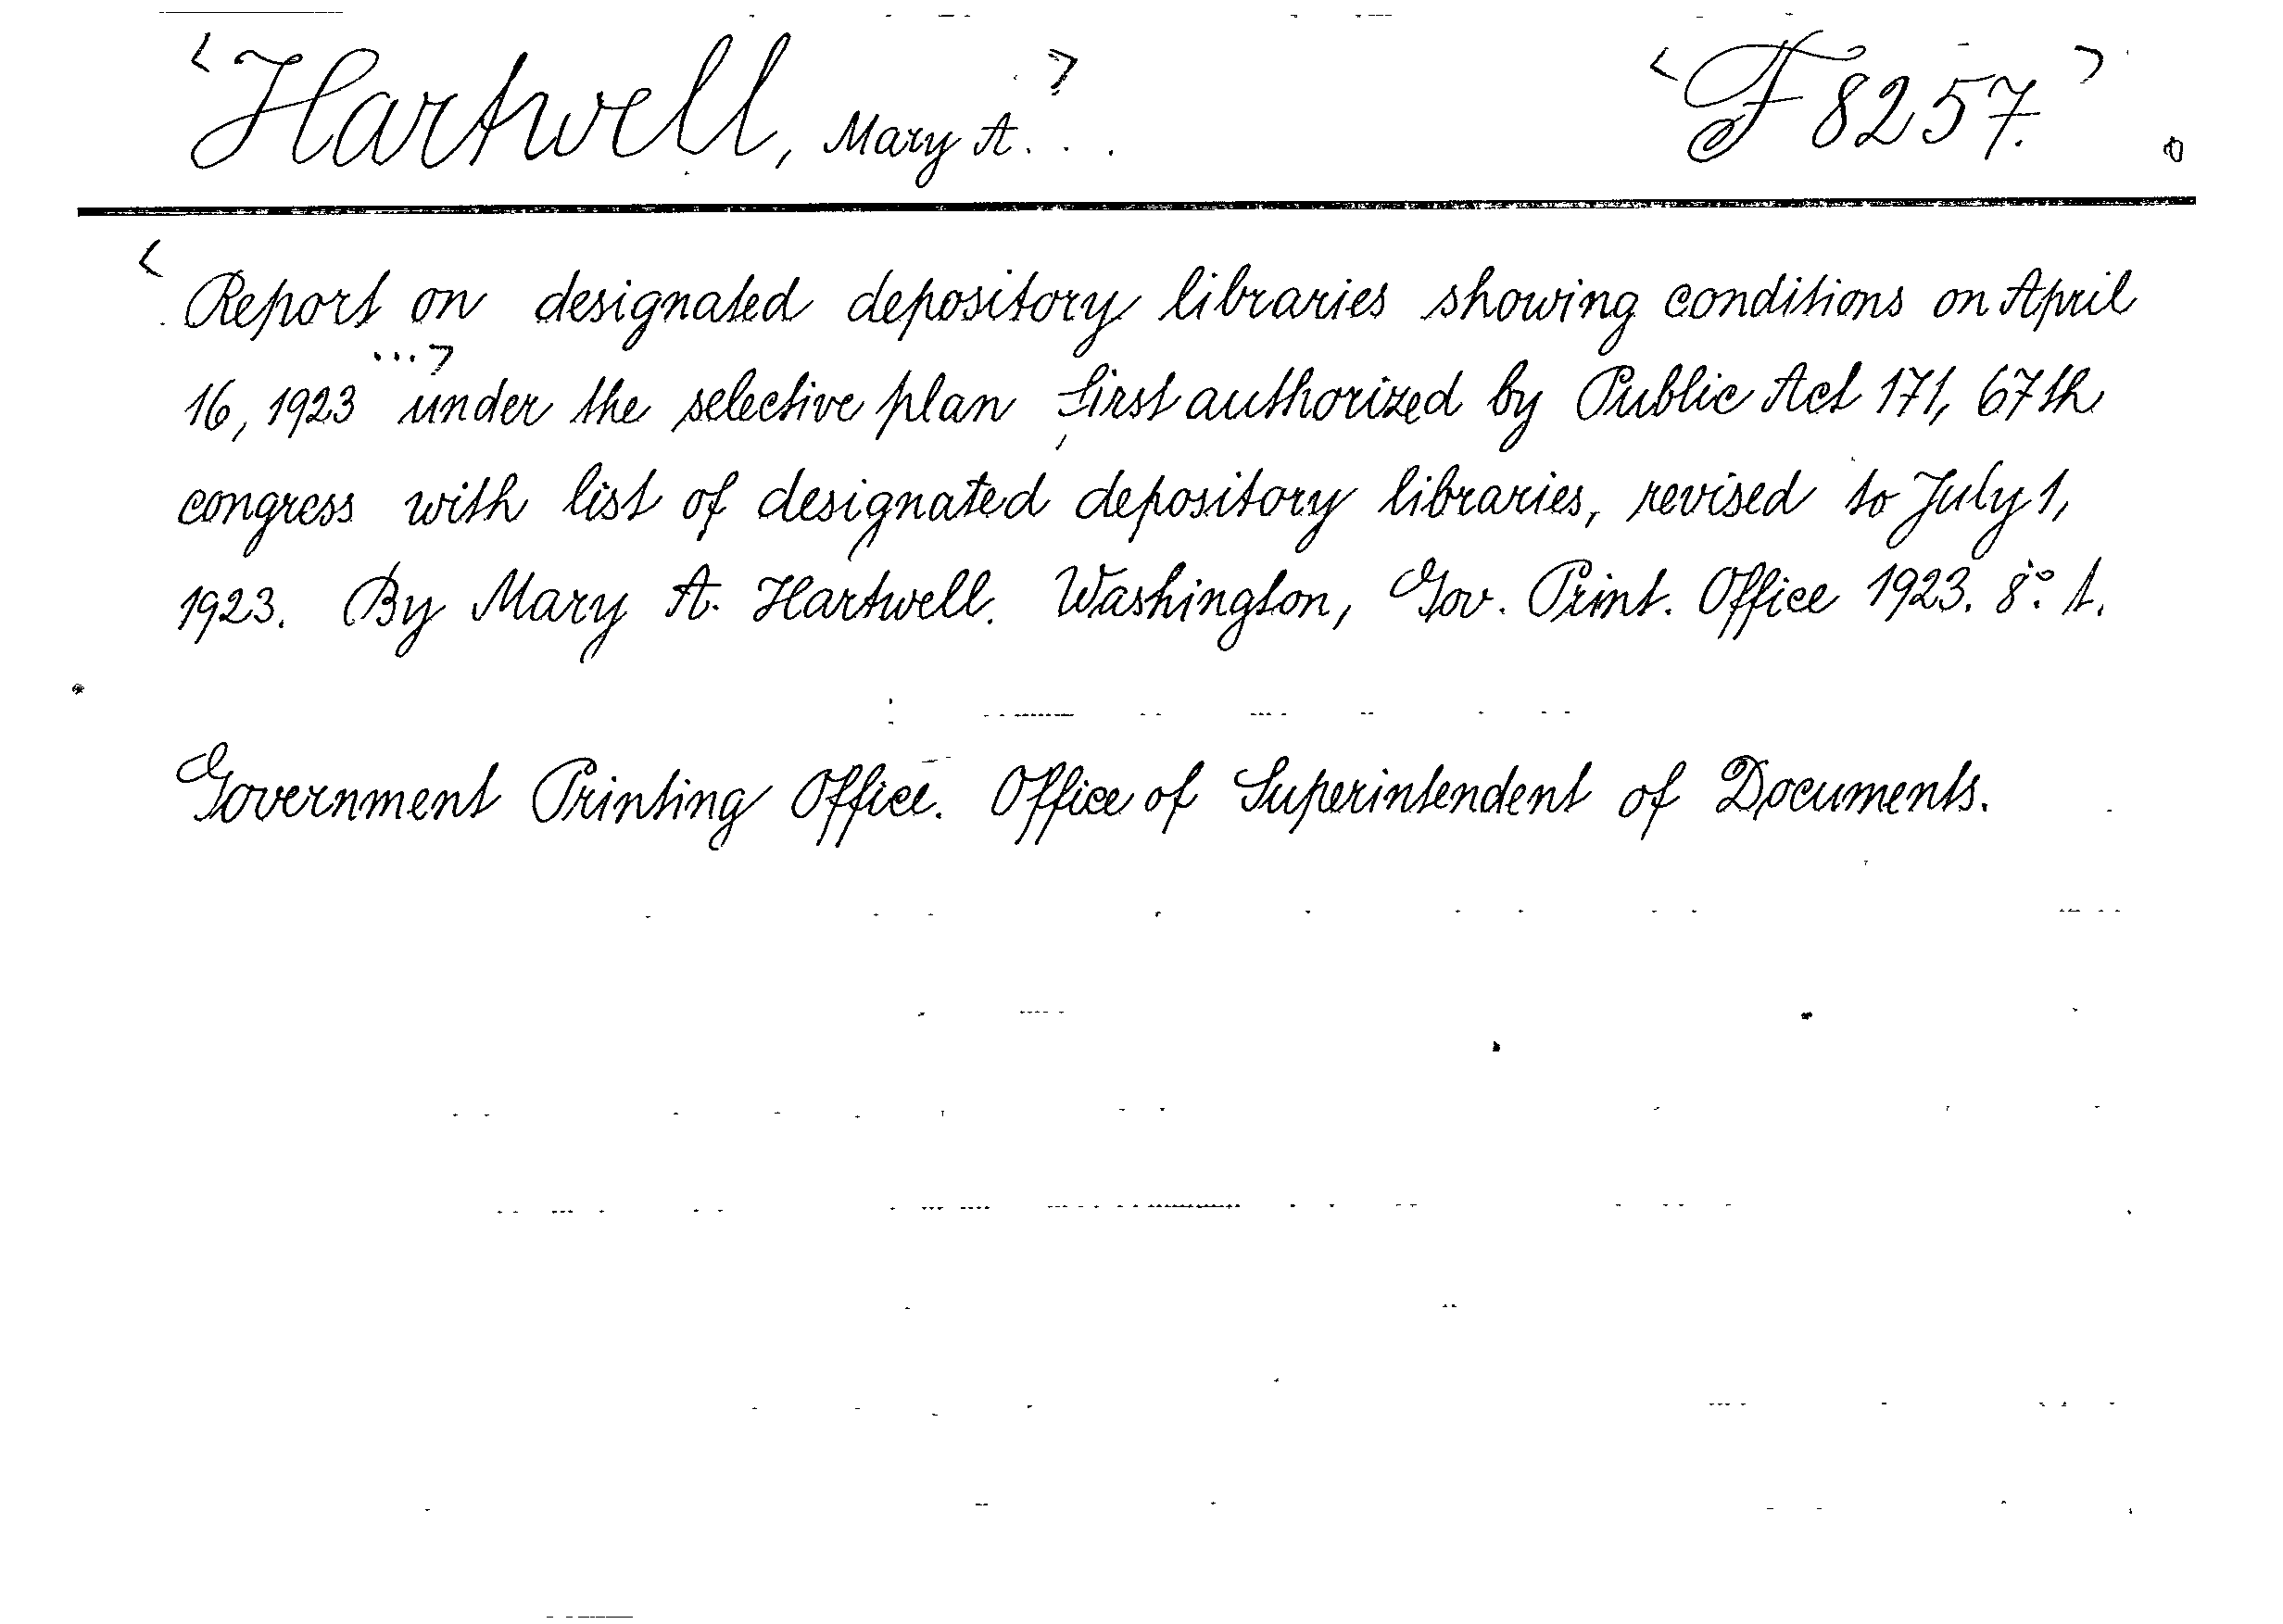 <Hartwell, Mary A. . .> <F 8257.>
<Report on designated depository libraries showing conditions on April
16, 1923 ...> under the selective plan first authorized by Public Act 171, 67th
congress with list of designated depository libraries, revised to July 1,
1923. By Mary A. Hartwell. Washington, Gov. Print. Office 1923. 8:° 1.
Government Printing Office. Office of Superintendent of Documents.